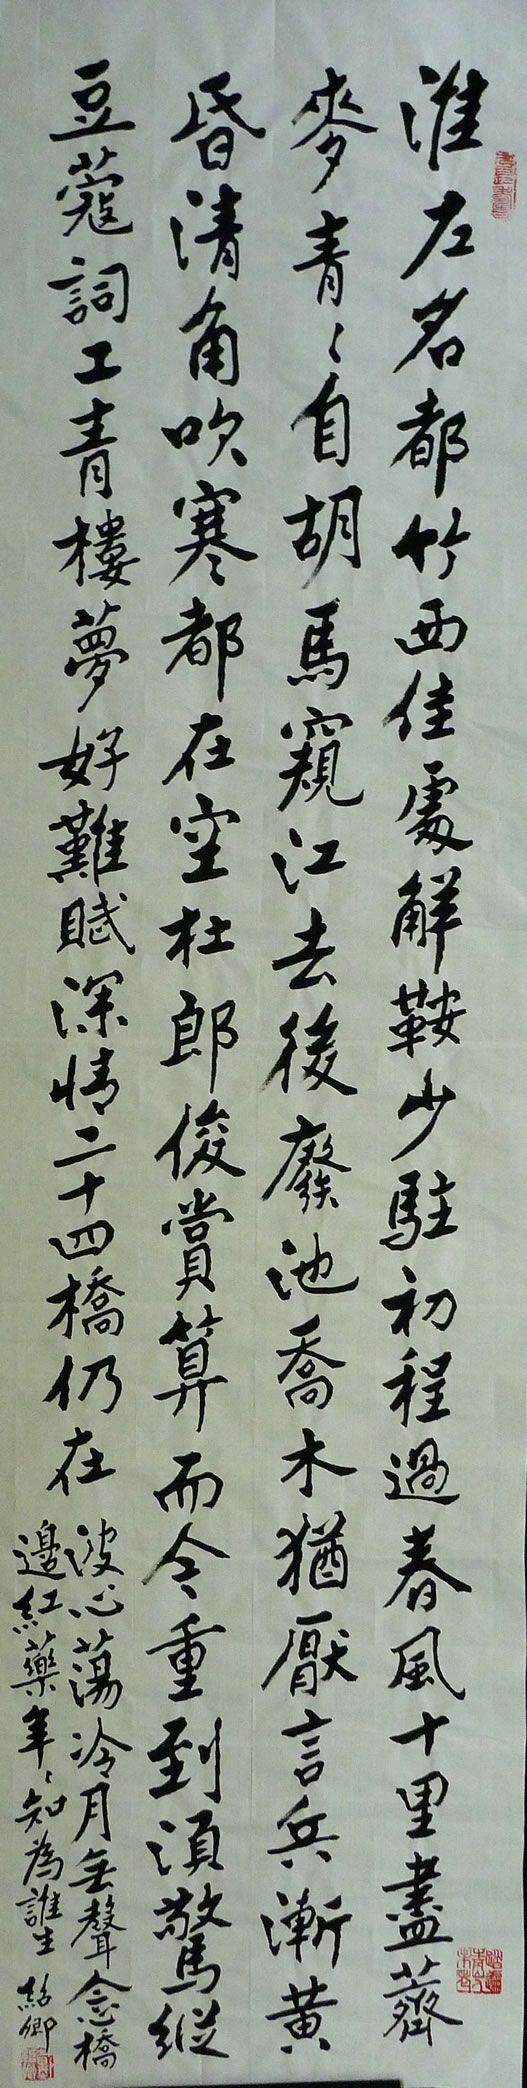 淮左名都竹西佳處解鞍少駐初程過春風十里盡薺
麥青〻自胡馬窺江去後廢池喬木猶厭言兵漸黃
昏清角吹寒都在空杜郎俊賞算而今重到須驚縱
豆蔻詞工青樓夢好難賦深情二十四橋仍在
波心蕩冷月無聲念橋
邊紅藥年〻知為誰生 紹卿